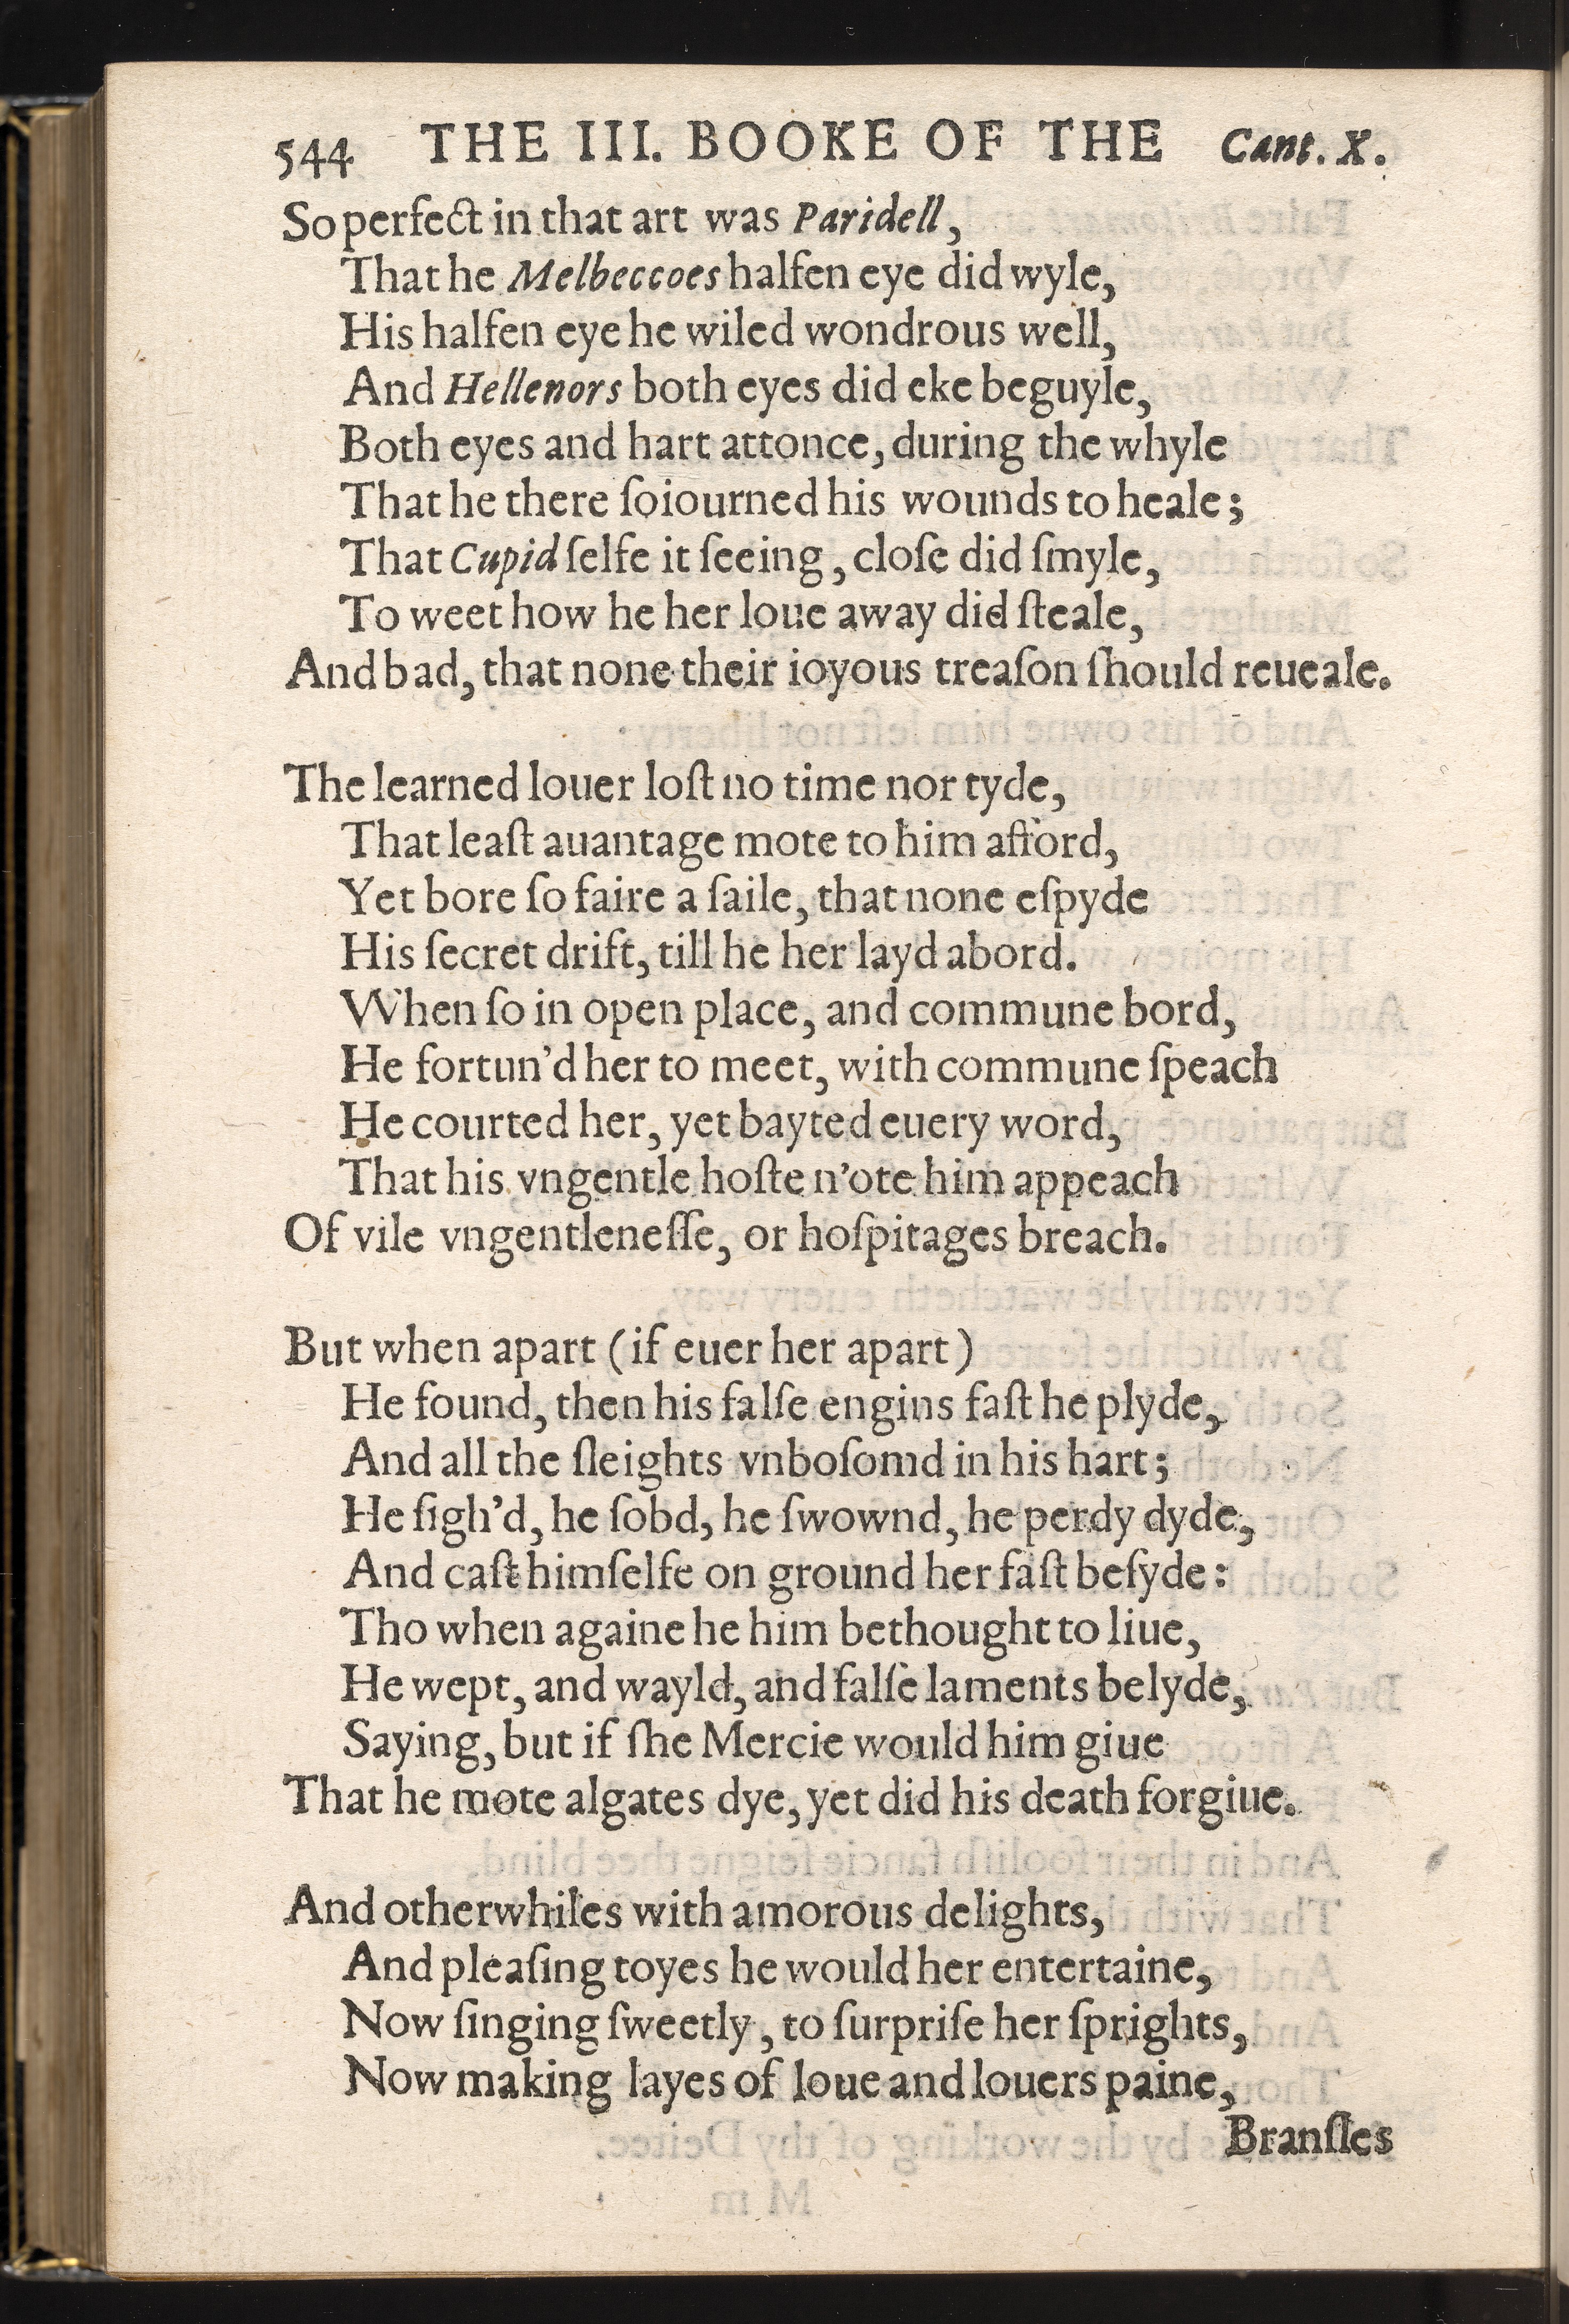 544 THE III. BOOKE OF THE Cant. X.
So perfect in that art was Paridell,
That he Melbeccoes halfen eye did wyle,
His halfen eye he wiled wondrous well,
And Hellenors both eyes did eke beguyle,
Both eyes and hart attonce, during the whyle
That he there ſoiourned his wounds to heale;
That Cupid ſelfe it ſeeing, cloſe did ſmyle,
To weet how he her loue away did ſteale,
And bad, that none their ioyous treaſon ſhould reueale.
The learned louer loſt no time nor tyde,
That leaſt auantage mote to him afford,
Yet bore ſo faire a ſaile, that none eſpyde
His ſecret drift, till he her layd abord.
When ſo in open place, and commune bord,
He fortun'd her to meet, with commune ſpeach
He courted her, yet bayted euery word,
That his vngentle hoſte n'ote him appeach
Of vile vngentleneſſe, or hoſpitages breach.
But when apart (if euer her apart)
He found, then his falſe engins faſt he plyde,
And all the ſleights vnboſomd in his hart;
He ſigh'd, he ſobd, he ſwownd, he perdy dyde,
And caſt himſelfe on ground her faſt beſyde:
Tho when againe he him bethought to liue,
He wept, and wayld, and falſe laments belyde,
Saying, but if ſhe Mercie would him giue
That he mote algates dye, yet did his death forgiue.
And otherwhiles with amorous delights,
And pleaſing toyes he would her entertaine,
Now ſinging ſweetly, to ſurpriſe her ſprights,
Now making layes of loue and louers paine,
Branſles